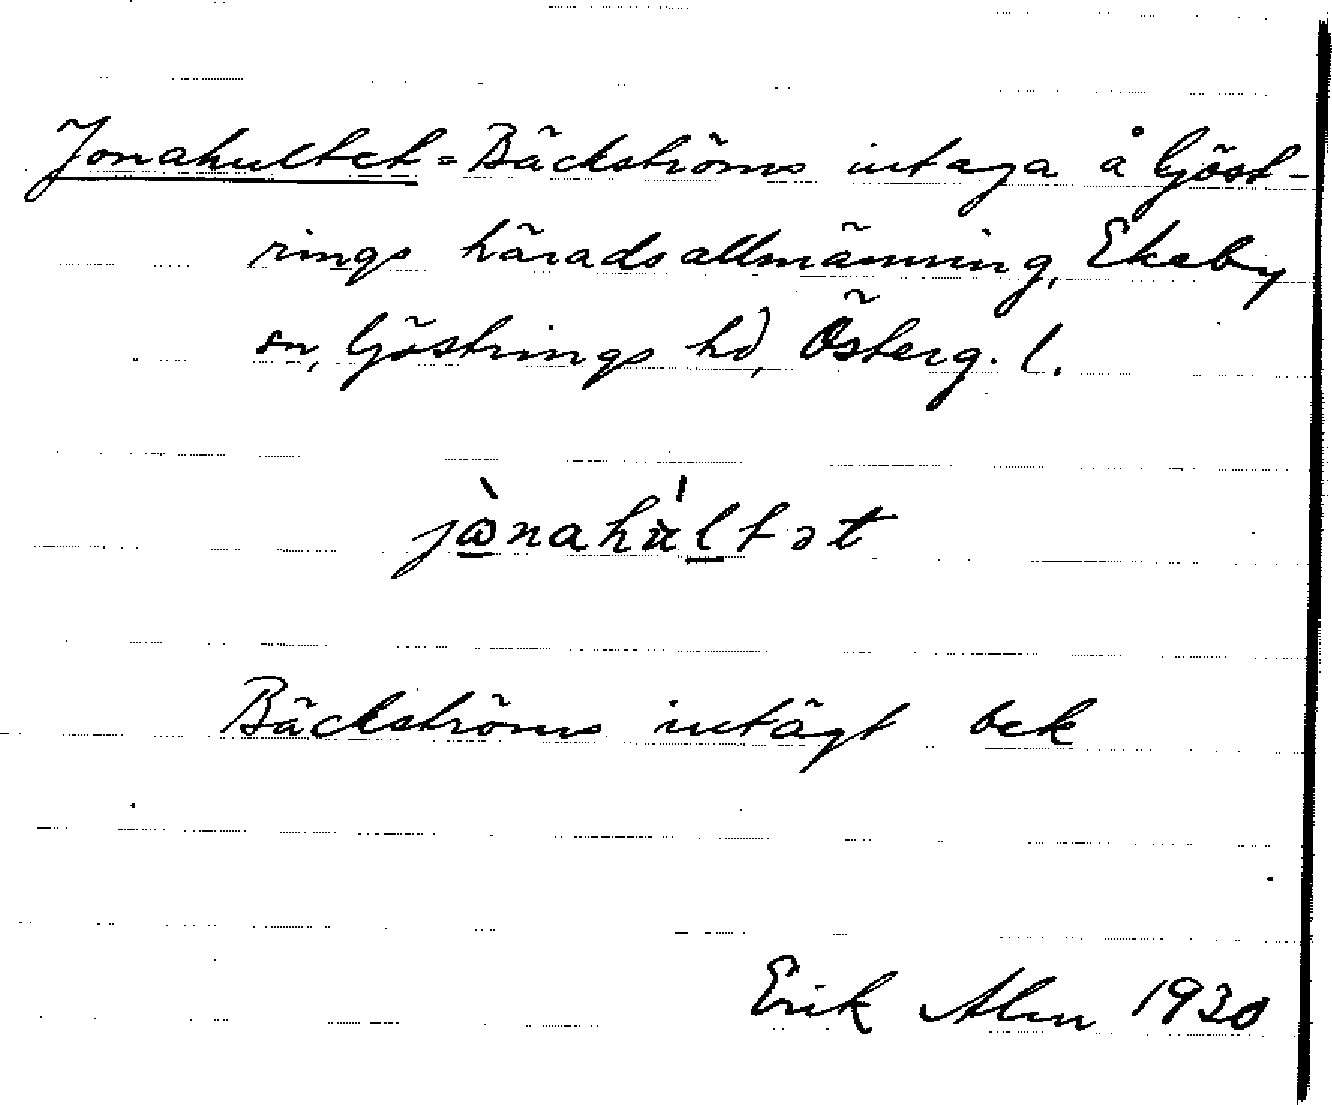 Jonahultet = Bäckströms intaga å Göst-
rings häradsallmänning, Ekeby
sn, Göstrings hd, Österg. l.
jònahu̇ltət
Bäckströms intägt bek
Erik Alm 1930